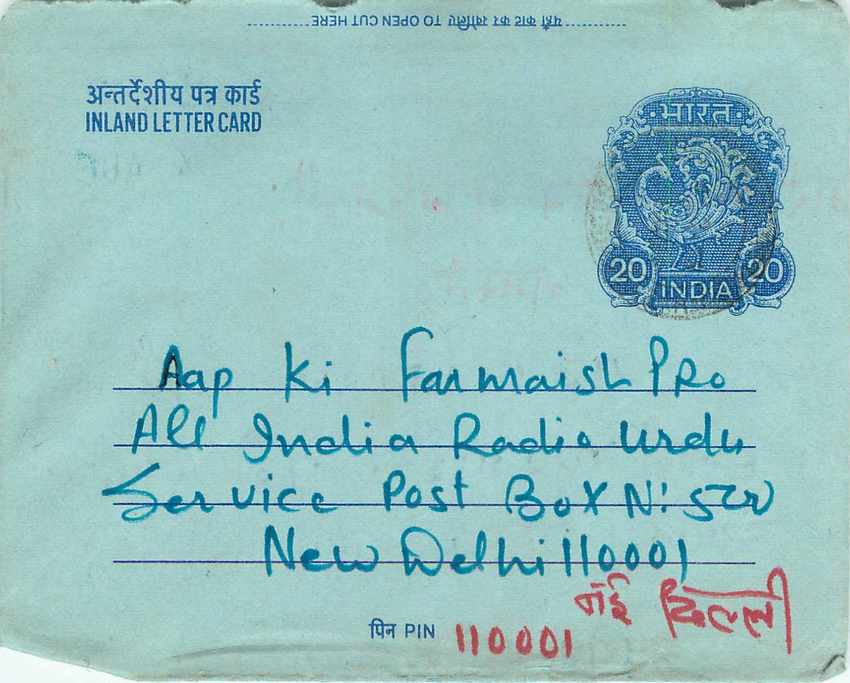 यहाँ काट कर खोलिए TO OPEN CUT HERE
अन्तर्देशीय पत्र कार्ड
INLAND LETTER CARD
भारत
20 20
INDIA
Aap Ki Farmaish Pro
All India Radio Urdu
Service Post Box No:
New Delhi 110001
नई दिल्ली
पिन PIN 110001